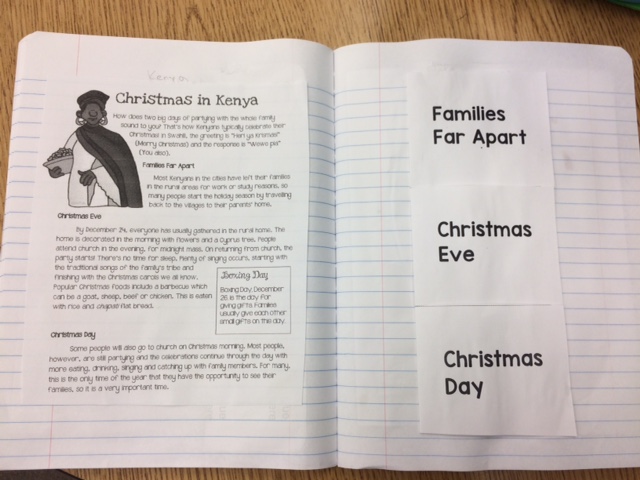 Kenya
Christmas in Kenya
How does two big days of partying with the whole family
sound to you? That's how Kenyans typically celebrate their
Christmas. In Swahili, the greeting is
(Merry Christmas) and the response is "Wewe pia"
(You also).
Families Far Apart
Most Kenyans in the cities have left their families
in the rural areas for work or study reasons, so
many people start the holiday season by travelling
back to the villages to their parents' home.
Christmas Eve
By December 24, everyone has usually gathered in the rural home. The
home is decorated in the morning with flowers and a Cyprus tree. People
attend church in the evening, for midnight mass. On returning from church, the
party starts! There's no time for sleep. Plenty of singing occurs, starting with
the traditional songs of the family's tribe and
finishing with the Christmas carols we all know.
Popular Christmas foods include a barbecue which
can be a goat, sheep, beef or chicken. This is eaten
with rice and chapati flat bread.
Boxing Day
Boxing Day, December
26 is the day for
giving gifts. Families
usually give each other
small gifts on this day.
Christmas Day
Some people will also go to church on Christmas morning. Most people,
however, are still partying and the celebrations continue through the day with
more eating, drinking, singing and catching up with family members. For many,
this is the only time of the year that they have the opportunity to see their
families, so it is a very important time.
Families
Far Apart
Christmas
Eve
Christmas
Day